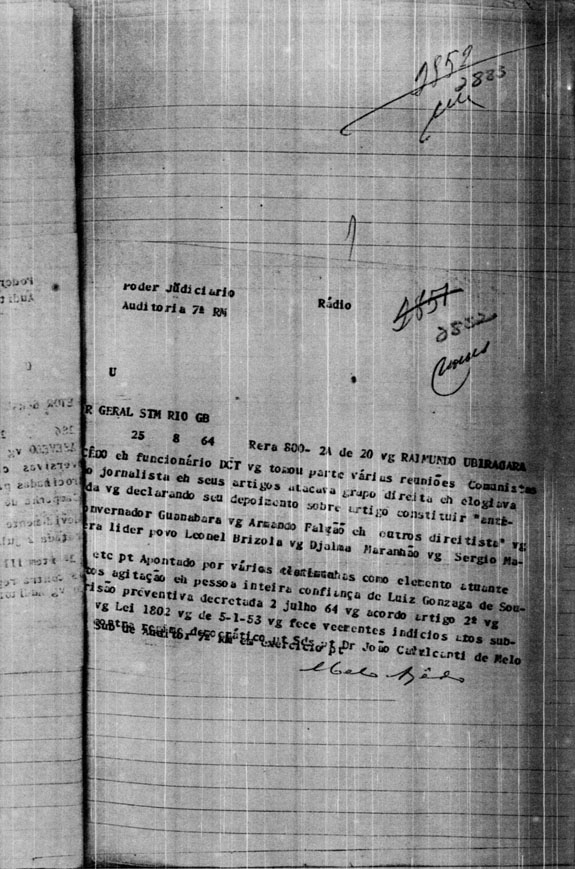 2852
2883
Poder Judiciario
Auditoria 7ª RM
Rádio
2851
2882
U
R GERAL STM RIO GB
25 8 64 Rera 800- 2A de 20 vg RAIMUNDO UBIRAGARA
CÊDO eh funcionário DCT vg tomou parte várias reuniões Comunistas
o jornalista eh seus artigos atacava grupo direita eh elogiava
da vg declarando seu depoimento sobre artigo constituir "anti-
overnador Guanabara vg Armando Falcão eh outros direitista" vg
era lider povo Leonel Brizola vg Djalma Maranhão vg Sergio Ma-
etc pt Apontado por vários como elemento atuante
tos agitação eh pessoa inteira confiança de Luiz Gonzaga de Sou-
risão preventiva decretada 2 julho 64 vg acordo artigo 2º vg
vg Lei 1802 vg de 5-1-53 vg fece veerentes indicios atos sub-
contra regime democrático pt Sds pt Dr João Cavalcanti de Melo
Sub de Auditor 7ª RM em exercicio pt